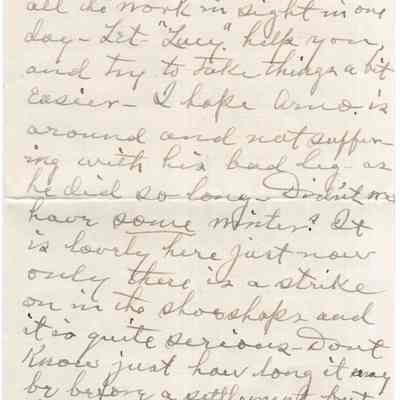 all the work in sight in one
day - Let "Lucy" help you,
and try to take things a bit
easier - I hope Arno. is
around and not suffer-
ing with his bad leg - as
he did so long - Didn't we
have some winter? It
is lovely here just now
only there is a strike
on in the shoeshops and
it is quite serious - Dont
Know just how long it may
be before a settlement but